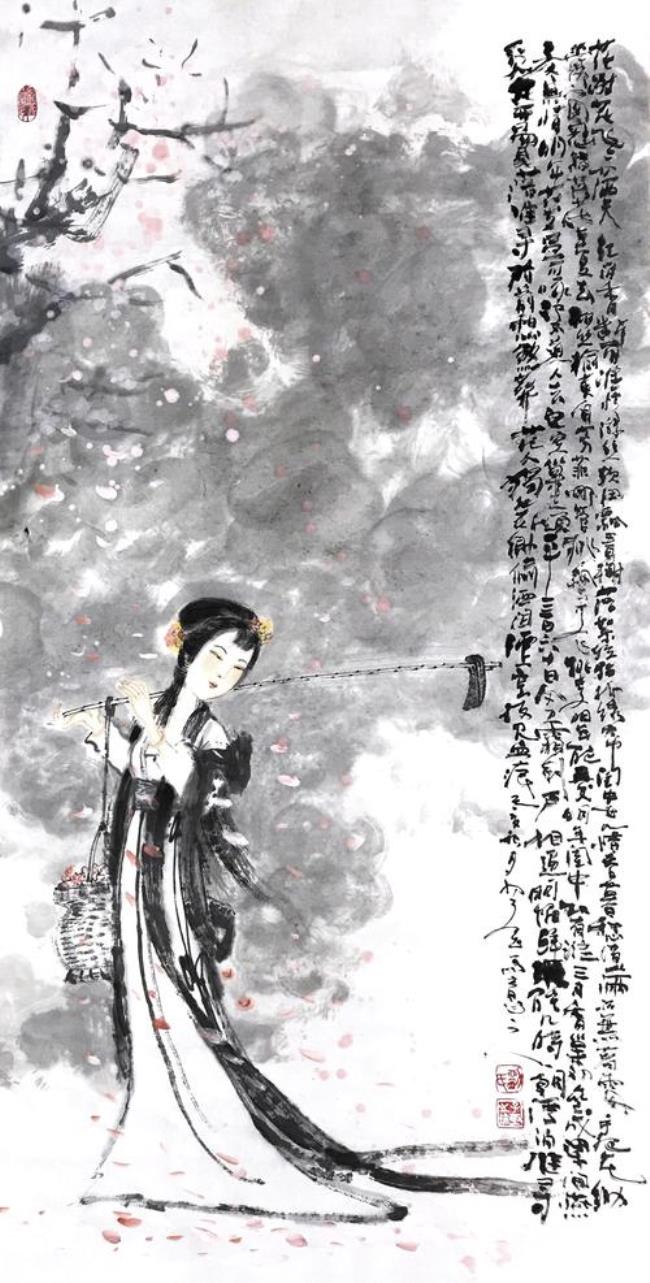 花谢花飞飞满天红消香断有谁怜游丝软系飘春榭落絮轻沾扑绣帘闺中女儿惜春暮愁绪满怀無着處手把花锄
出绣闺忍踏落花来复去柳丝榆荚自芳菲不管桃飘与李飞桃李明年能再发明年闺中知有谁三月香巢初垒成梁间燕
子太無情明年花发虽可啄却不道人去梁空巢已倾一年三百六十日风刀霜剑严相逼明媚鲜妍能几时一朝漂泊难寻
觅花开易見落难寻阶前愁煞葬花人独把花锄偷洒泪洒上空枝见血痕